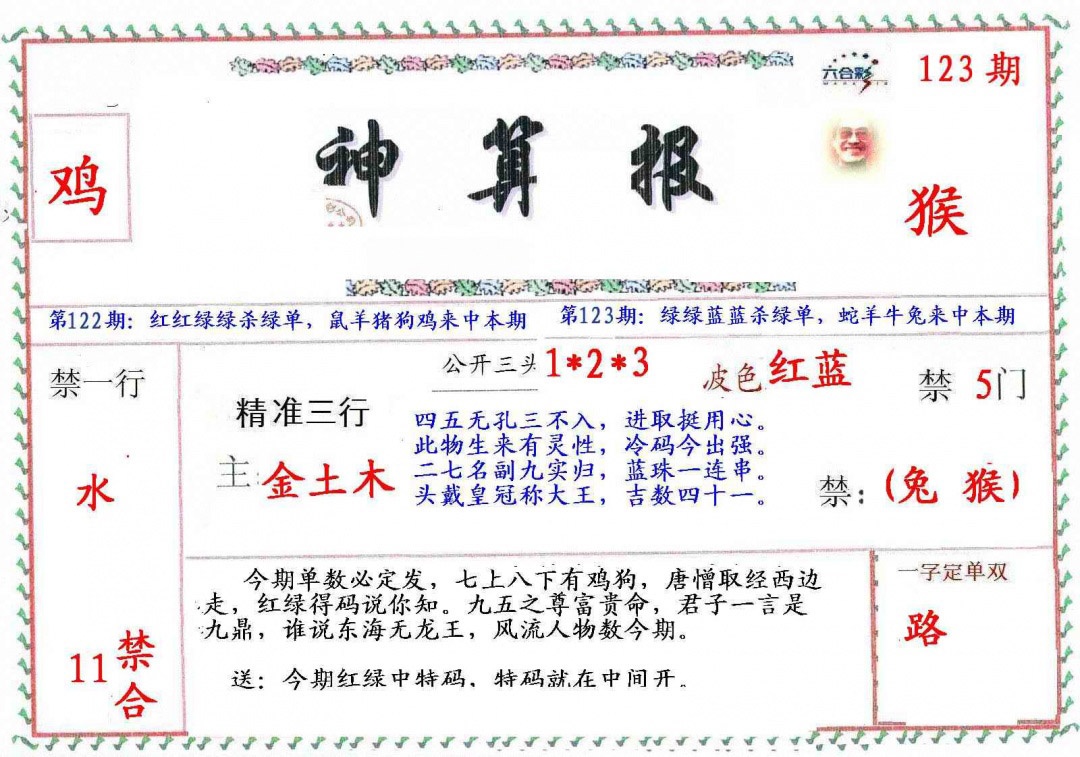 六合彩
123期
鸡
神算报
猴
第122期：红红绿绿杀绿单，鼠羊猪狗鸡来中本期
第123期：绿绿蓝蓝杀绿单，蛇羊牛兔来中本期
禁一行
水
11禁合
精准三行
主:金土木
公开三头1*2*3
波色红蓝
四五无孔三不入，进取挺用心。
此物生来有灵性，冷码今出强。
二七名副九实归，蓝珠一连串。
头戴皇冠称大王，吉数四十一。
禁 5门
禁：(兔 猴)
今期单数必定发，七上八下有鸡狗，唐憎取经西边
走，红绿得码说你知。九五之尊富贵命，君子一言是
九鼎，谁说东海无龙王，风流人物数今期。
送：今期红绿中特码，特码就在中间开。
一字定单双
路